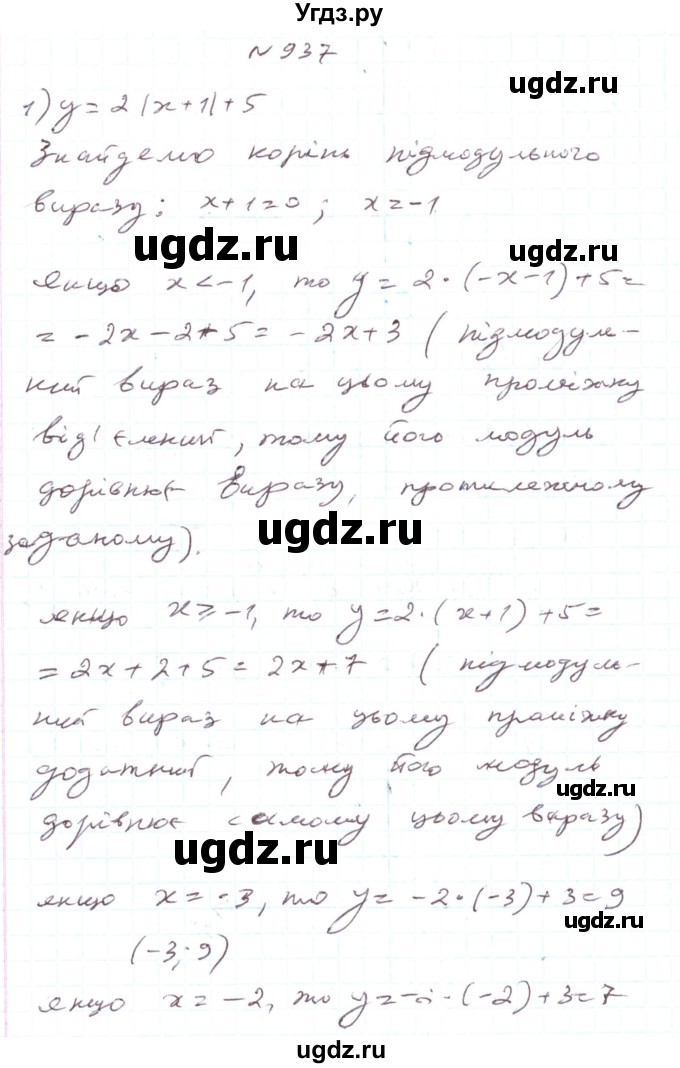 Угдз.ру
N 937
ugdz.ru
1) y = 2|x+1|+5
Знайдемо корінь підмодульного
виразу: x+1=0; x=-1.
ugdz.ru
ugdz.ru
якщо x<-1, то y = 2·(-x-1)+5=
= -2x-2+5 = -2x+3 (підмодуль-
ний вираз на цьому проміжку
від'ємний, тому його модуль
дорівнює виразу, протилежному
ugdz.ru
заданому).
якщо x≥-1, то y=2·(x+1)+5=
= 2x+2+5 = 2x+7 (підмодуль-
ний вираз на цьому проміжку
додатний, тому його модуль
ugdz.ru
дорівнює самому цьому виразу)
ugdz.ru
якщо x = -3, то y = -2·(-3)+3=9
(-3; 9)
ugdz.ru
якщо x = -2, то y=-2·(-2)+3=7
ugdz.ru